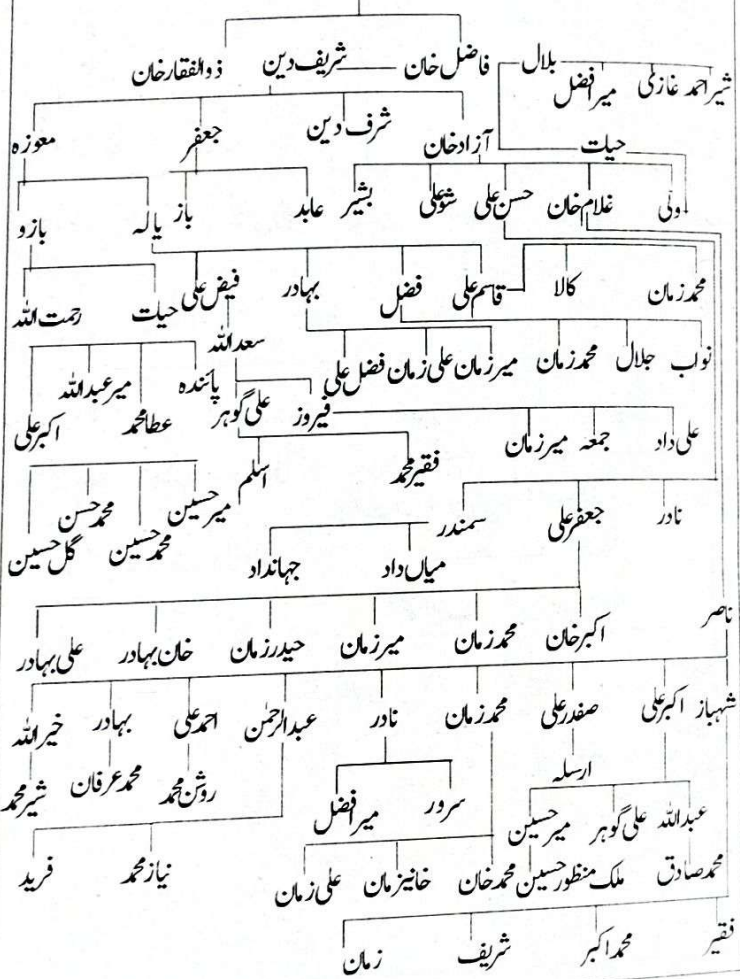 شیر احمد غازی میر افضل بلال فاضل خان شریف دین ذوالفقار خان
حیات آزاد خان شرف دین جعفر معوزہ
ولی غلام خان حسن علی شوعلی بشیر عابد باز یالہ بازو
محمد زمان کالا قاسم علی فضل بہادر فیض علی حیات رحمت اللہ
نواب جلال محمد زمان میر زمان علی زمان فضل علی سعد اللہ پائندہ عطا محمد میر عبداللہ اکبر علی
علی داد جمعہ میر زمان فیروز علی گوہر
فقیر محمد اسلم میر حسین محمد حسین محمد حسن گل حسین
نادر جعفر علی سمندر
میاں داد جہانداد
ناصر اکبر خان محمد زمان میر زمان حیدر زمان خان بہادر علی بہادر
شہباز اکبر علی صفدر علی محمد زمان نادر عبدالرحمن احمد علی بہادر خیر اللہ
ارسلہ روشن محمد محمد عرفان شیر محمد
عبداللہ علی گوہر میر حسین سرور میر افضل
محمد صادق ملک منظور حسین محمد خان خانیزمان علی زمان نیاز محمد فرید
فقیر محمد اکبر شریف زمان